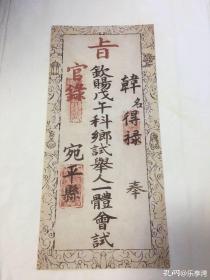 韓名得祿 奉
旨
欽賜戊午科鄉試舉人一體會試
官錄
宛平縣
孔网@乐享湾